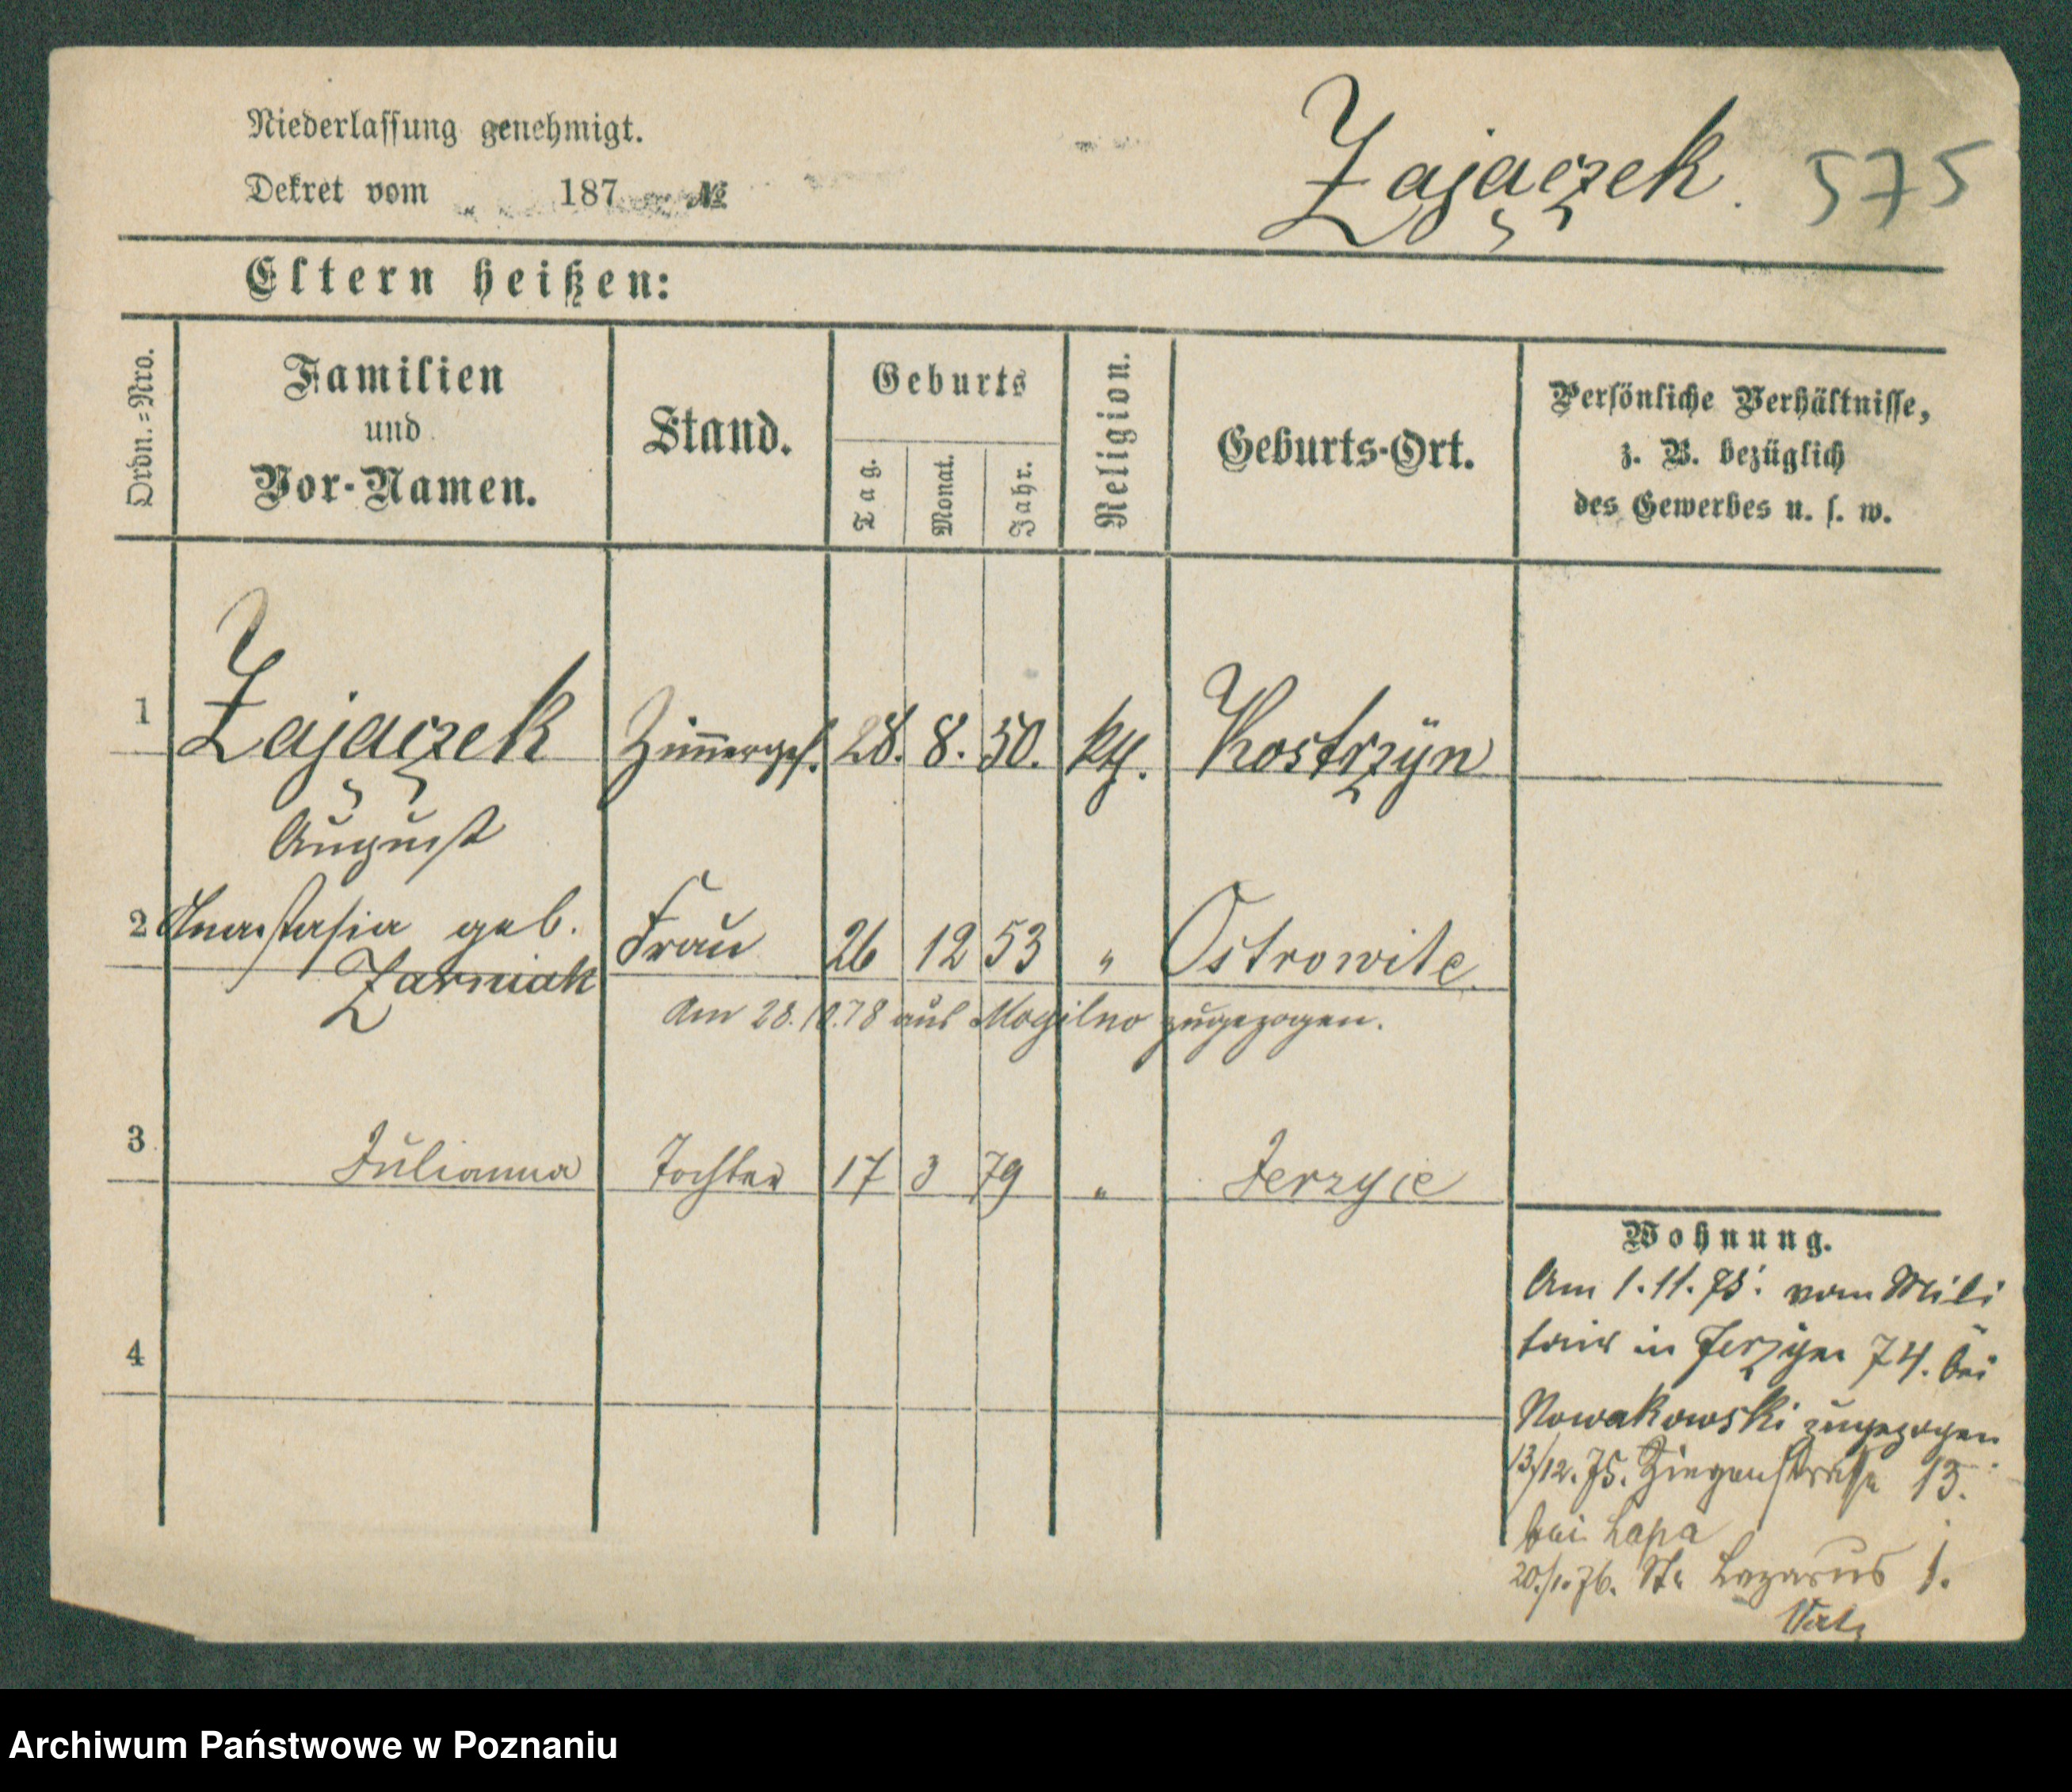 Niederlassung genehmigt.
Dekret vom 187 №
Zajączek. 575
Eltern heißen:
Ordn.=Nro.
Familien
und
Vor-Namen.
Stand.
Geburts
Tag.
Monat.
Jahr.
Religion.
Geburts-Ort.
Persönliche Verhältnisse,
z. B. bezüglich
des Gewerbes u. s. w.
1 Zajączek Zimmerges. 28. 8. 50. kth. Kostrzyn
August
2 Anastasia geb. Frau 26 12 53 " Ostrowite
Zarniak
Am 28.10.78 aus Mogilno zugezogen.
3 Julianna Tochter 17 3 79 " Jerzyce
4
Wohnung.
Am 1.11.75. vom Mili
tair in Jerzyce 74. bei
Nowakowski zugezogen
13/12.75. Ziegenstrasse 13.
bei Lapa
20/1.76. St. Lazarus 1.
Archiwum Państwowe w Poznaniu